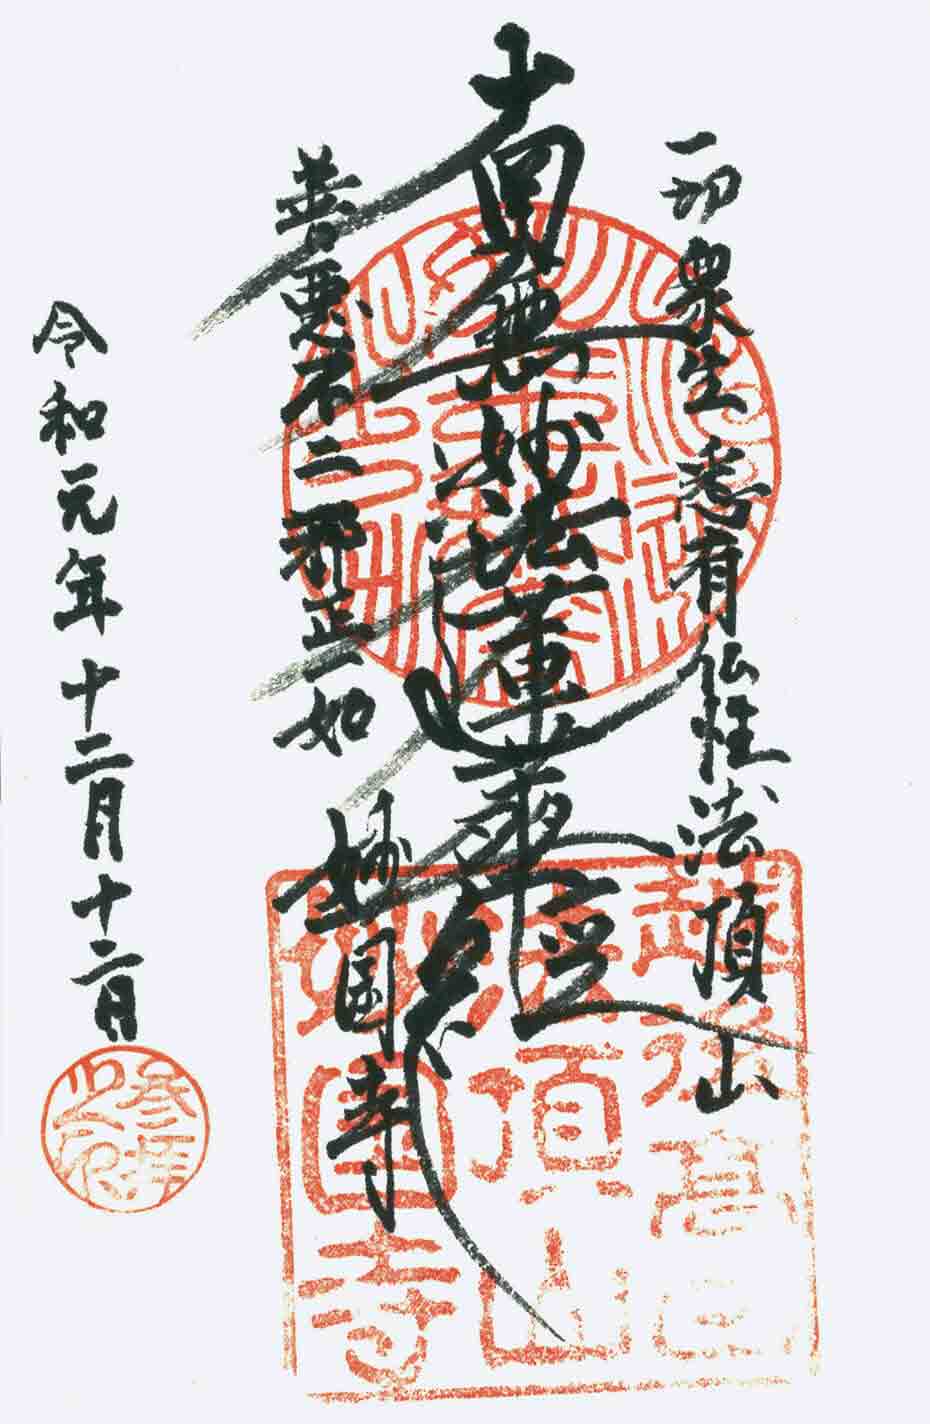 一切衆生 悉有仏性 法頂山
南無妙法蓮華経
善悪不二 邪正一如 妙国寺
令和元年十二月十二日
越後高田
法頂山
妙国寺
参拝